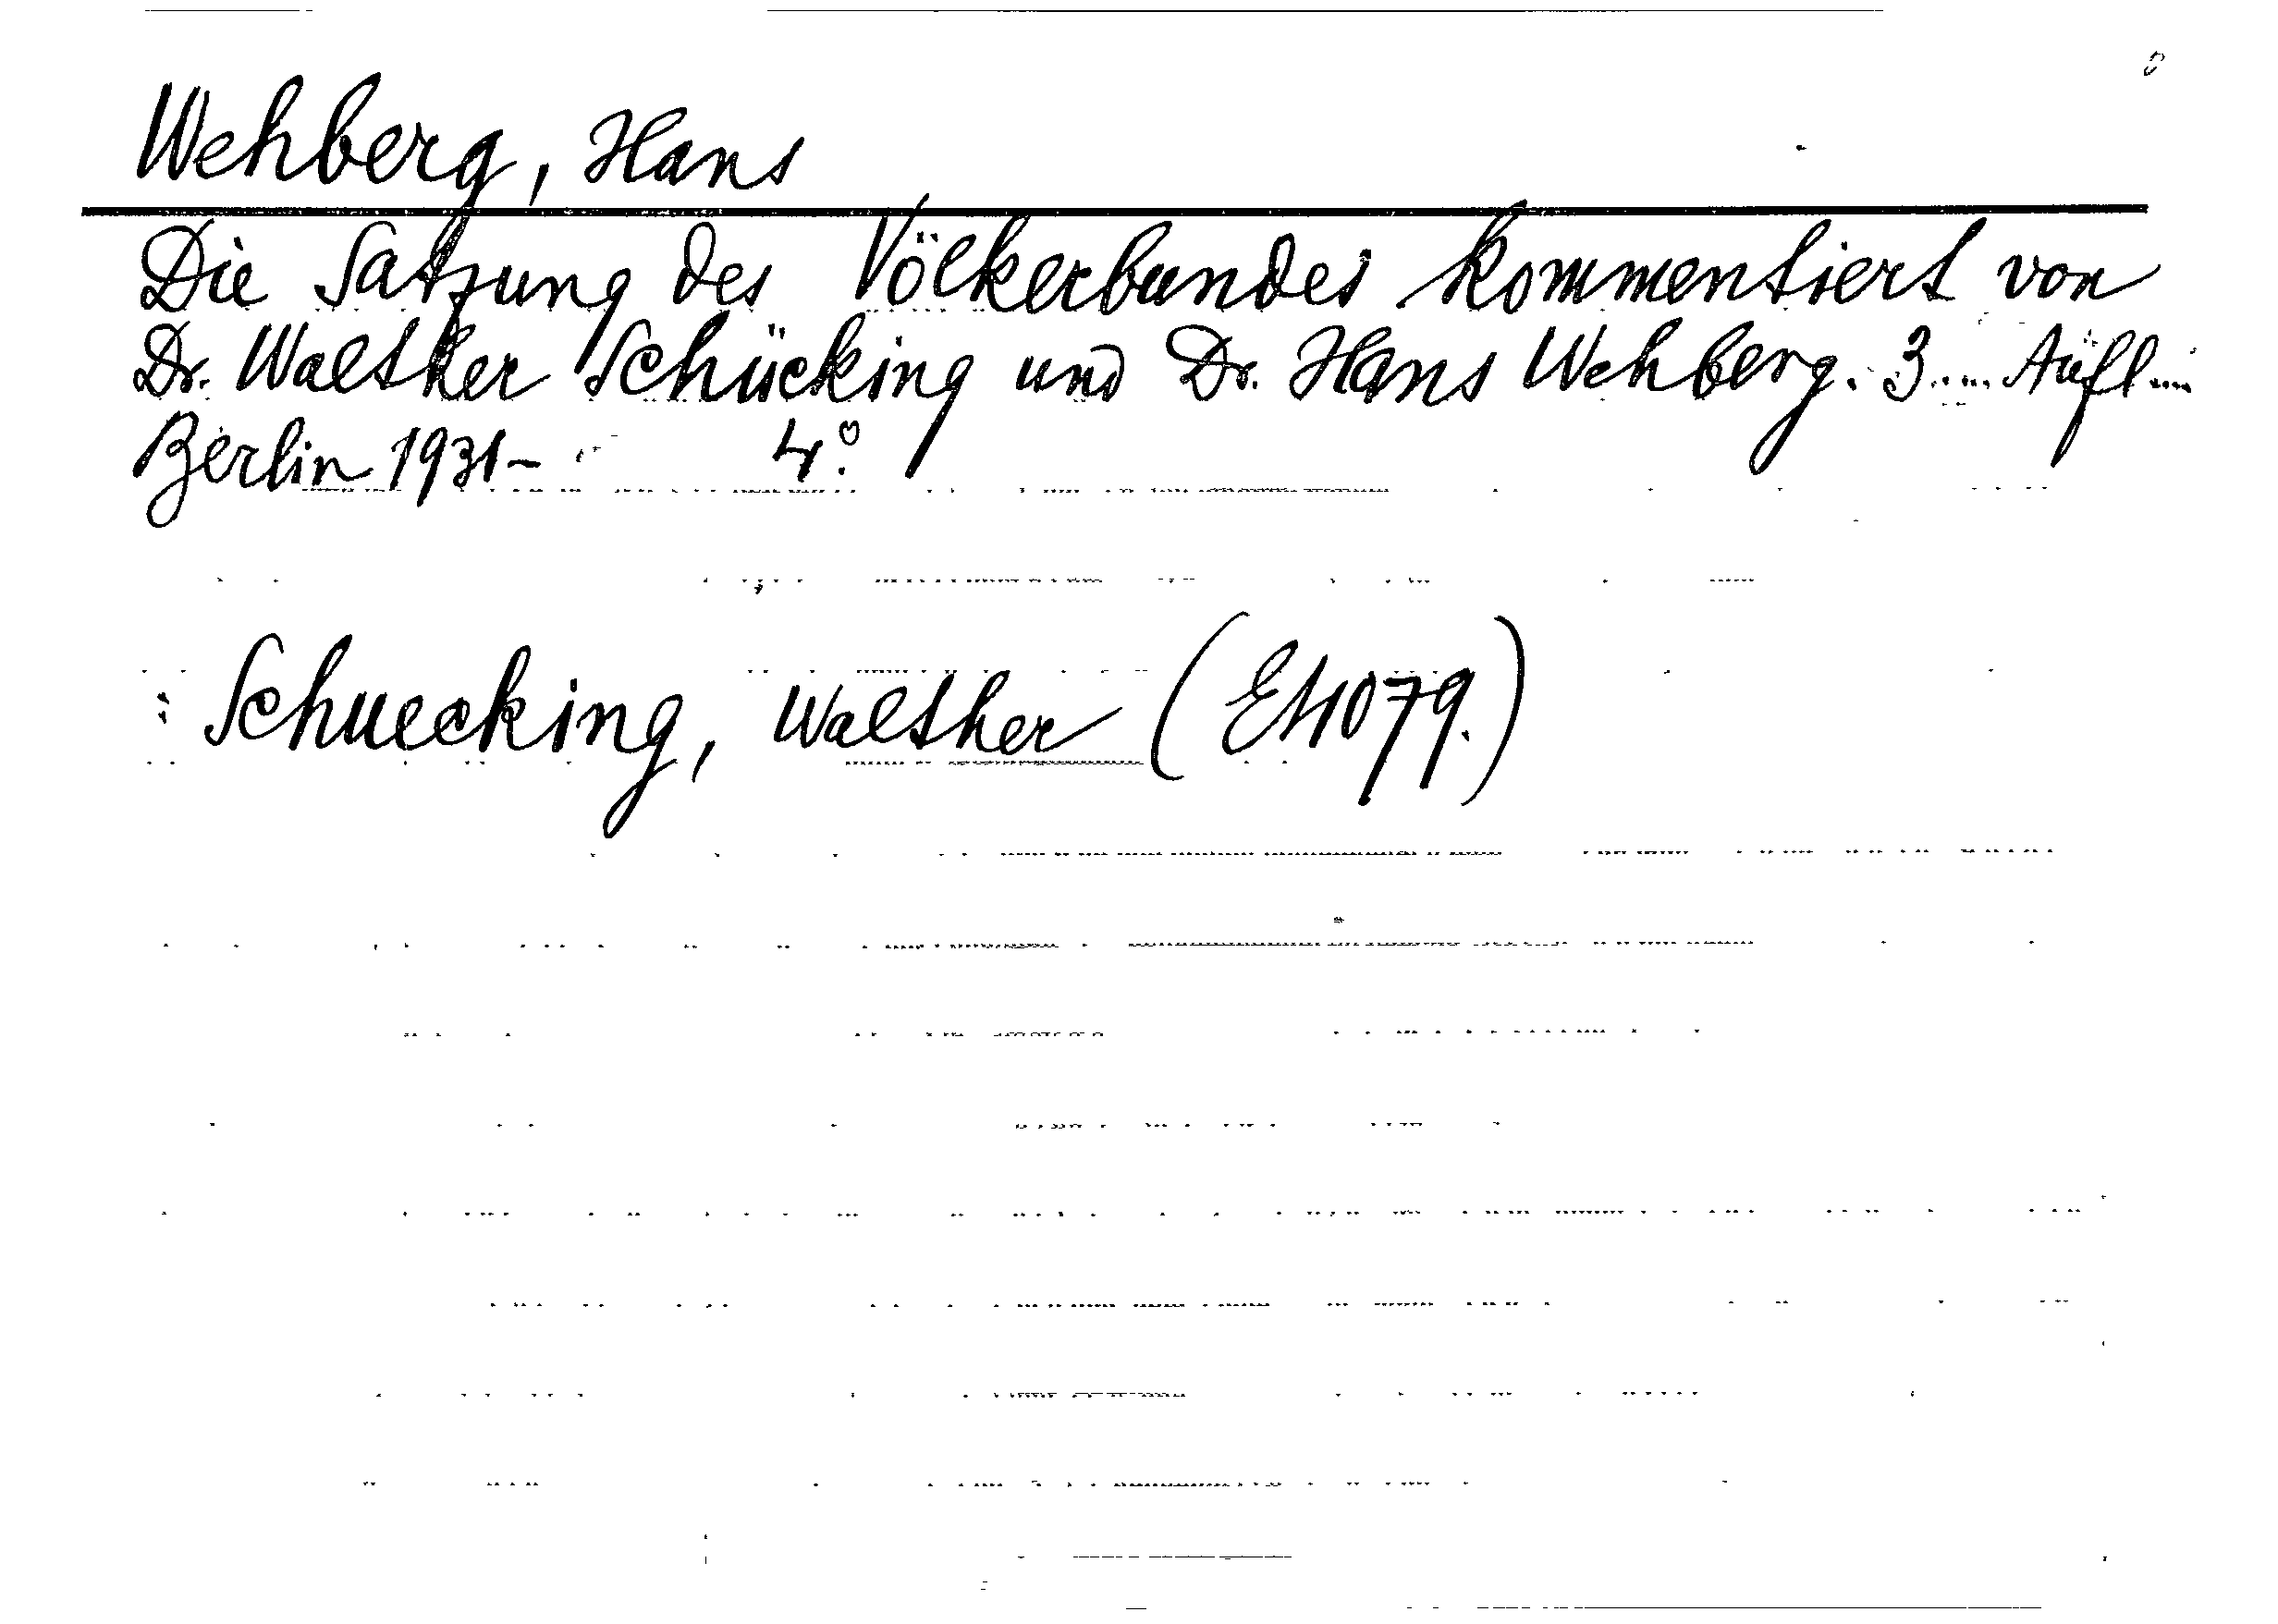 Wehberg, Hans
Die Satzung des Völkerbundes kommentiert von
Dr. Walther Schücking und Dr. Hans Wehberg. 3.... Aufl....
Berlin 1931- 4°.
: Schuecking, Walther (E4079.)